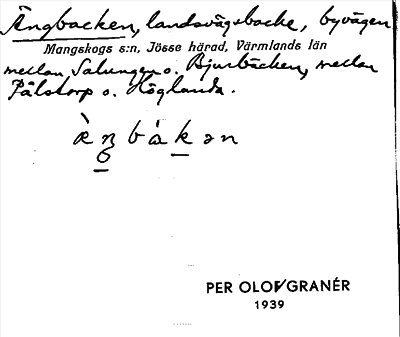 Ängbacken, landsvägsbacke, byvägen
Mangskogs s:n, Jösse härad, Värmlands län
mellan Salungen o. Bjurbäcken, mellan
Pålstorp o. Höglanda.
PER OLOV GRANÉR
1939